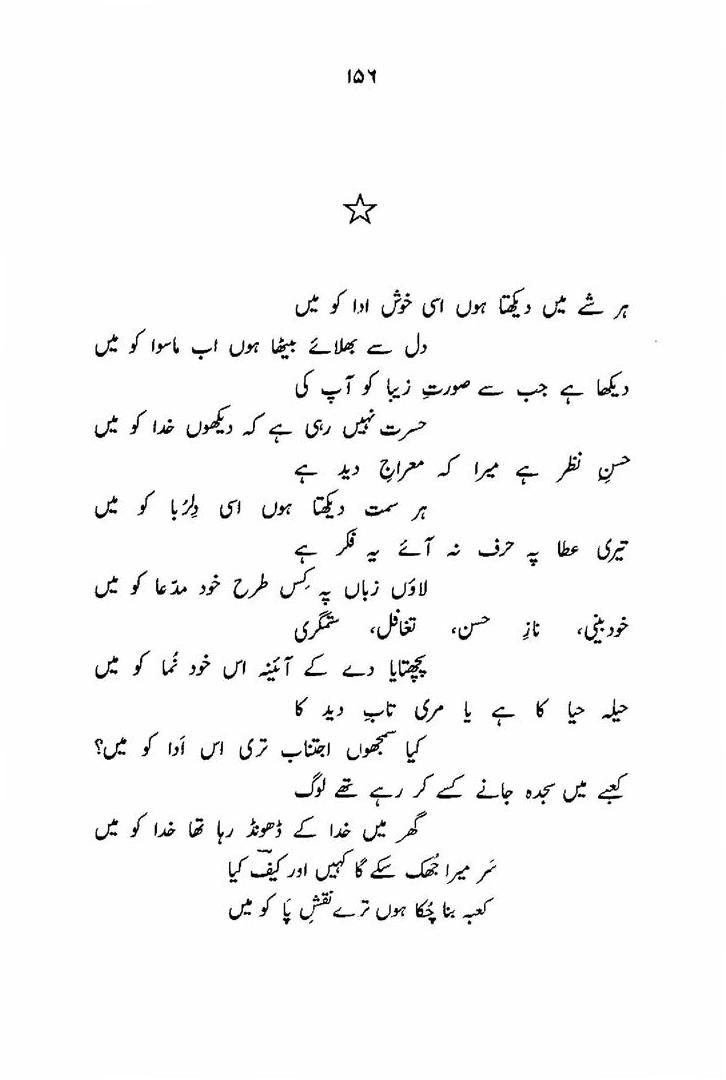 ۱۵۶
ہر شے میں دیکھتا ہوں اسی خوش ادا کو میں
دل سے بھلائے بیٹھا ہوں اب ماسوا کو میں
دیکھا ہے جب سے صورتِ زیبا کو آپ کی
حسرت نہیں رہی ہے کہ دیکھوں خدا کو میں
حسنِ نظر ہے میرا کہ معراجِ دید ہے
ہر سمت دیکھتا ہوں اسی دِلرُبا کو میں
تیری عطا پہ حرف نہ آئے یہ فکر ہے
لاؤں زباں پہ کِس طرح خود مدّعا کو میں
خودبینی، نازِ حسن، تغافل، ستمگری
پچھتایا دے کے آئینہ اس خود نُما کو میں
حیلہ حیا کا ہے یا مری تابِ دید کا
کیا سمجھوں اجتناب تری اس اَدا کو میں؟
کعبے میں سجدہ جانے کسے کر رہے تھے لوگ
گھر میں خدا کے ڈھونڈ رہا تھا خدا کو میں
سَر میرا جُھک سکے گا کہیں اور کیفؔ کیا
کعبہ بنا چُکا ہوں ترے نقشِ پَا کو میں